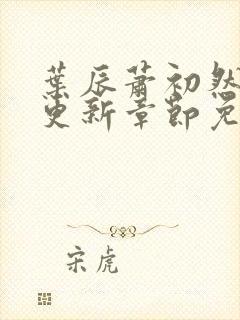 葉辰蕭初然
更新章節免
宋虎